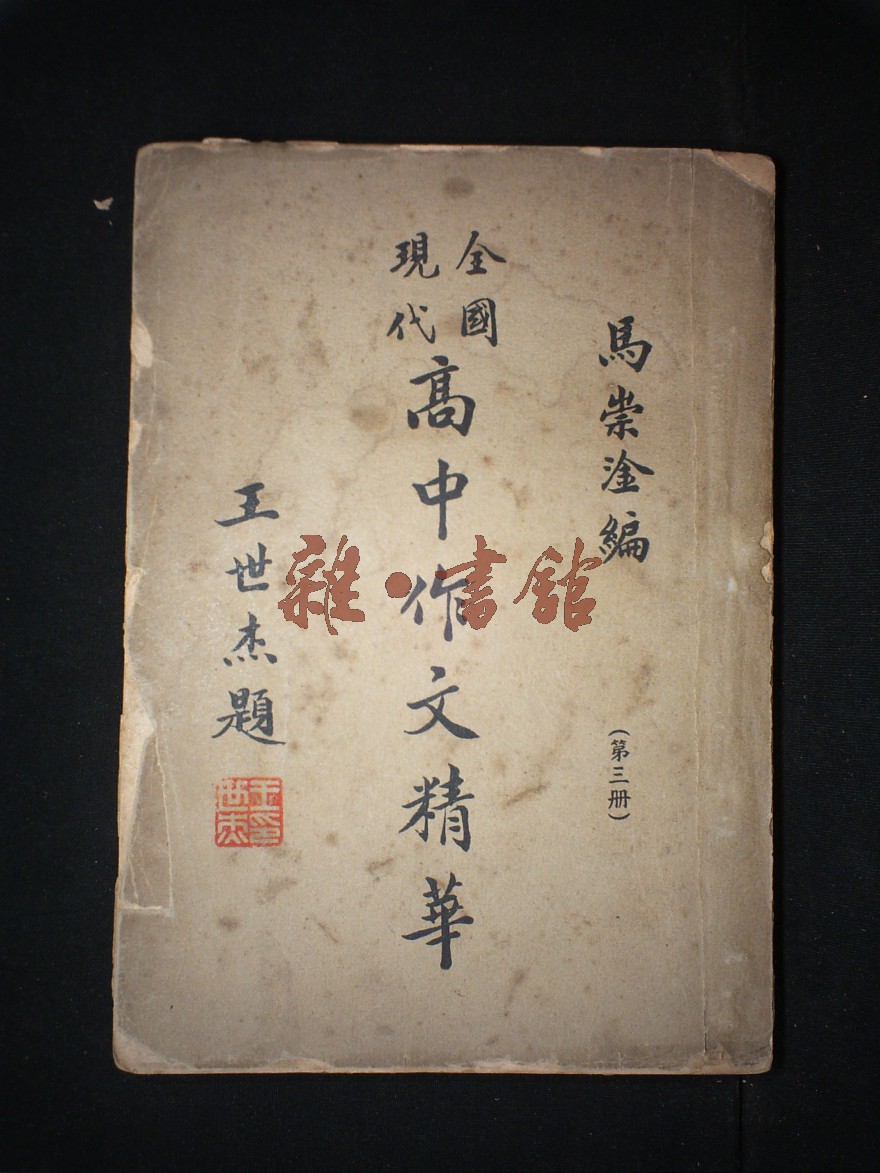 馬崇淦編
(第三册)
全國
現代
高中作文精華
王世杰題
王世杰印
雜·書館